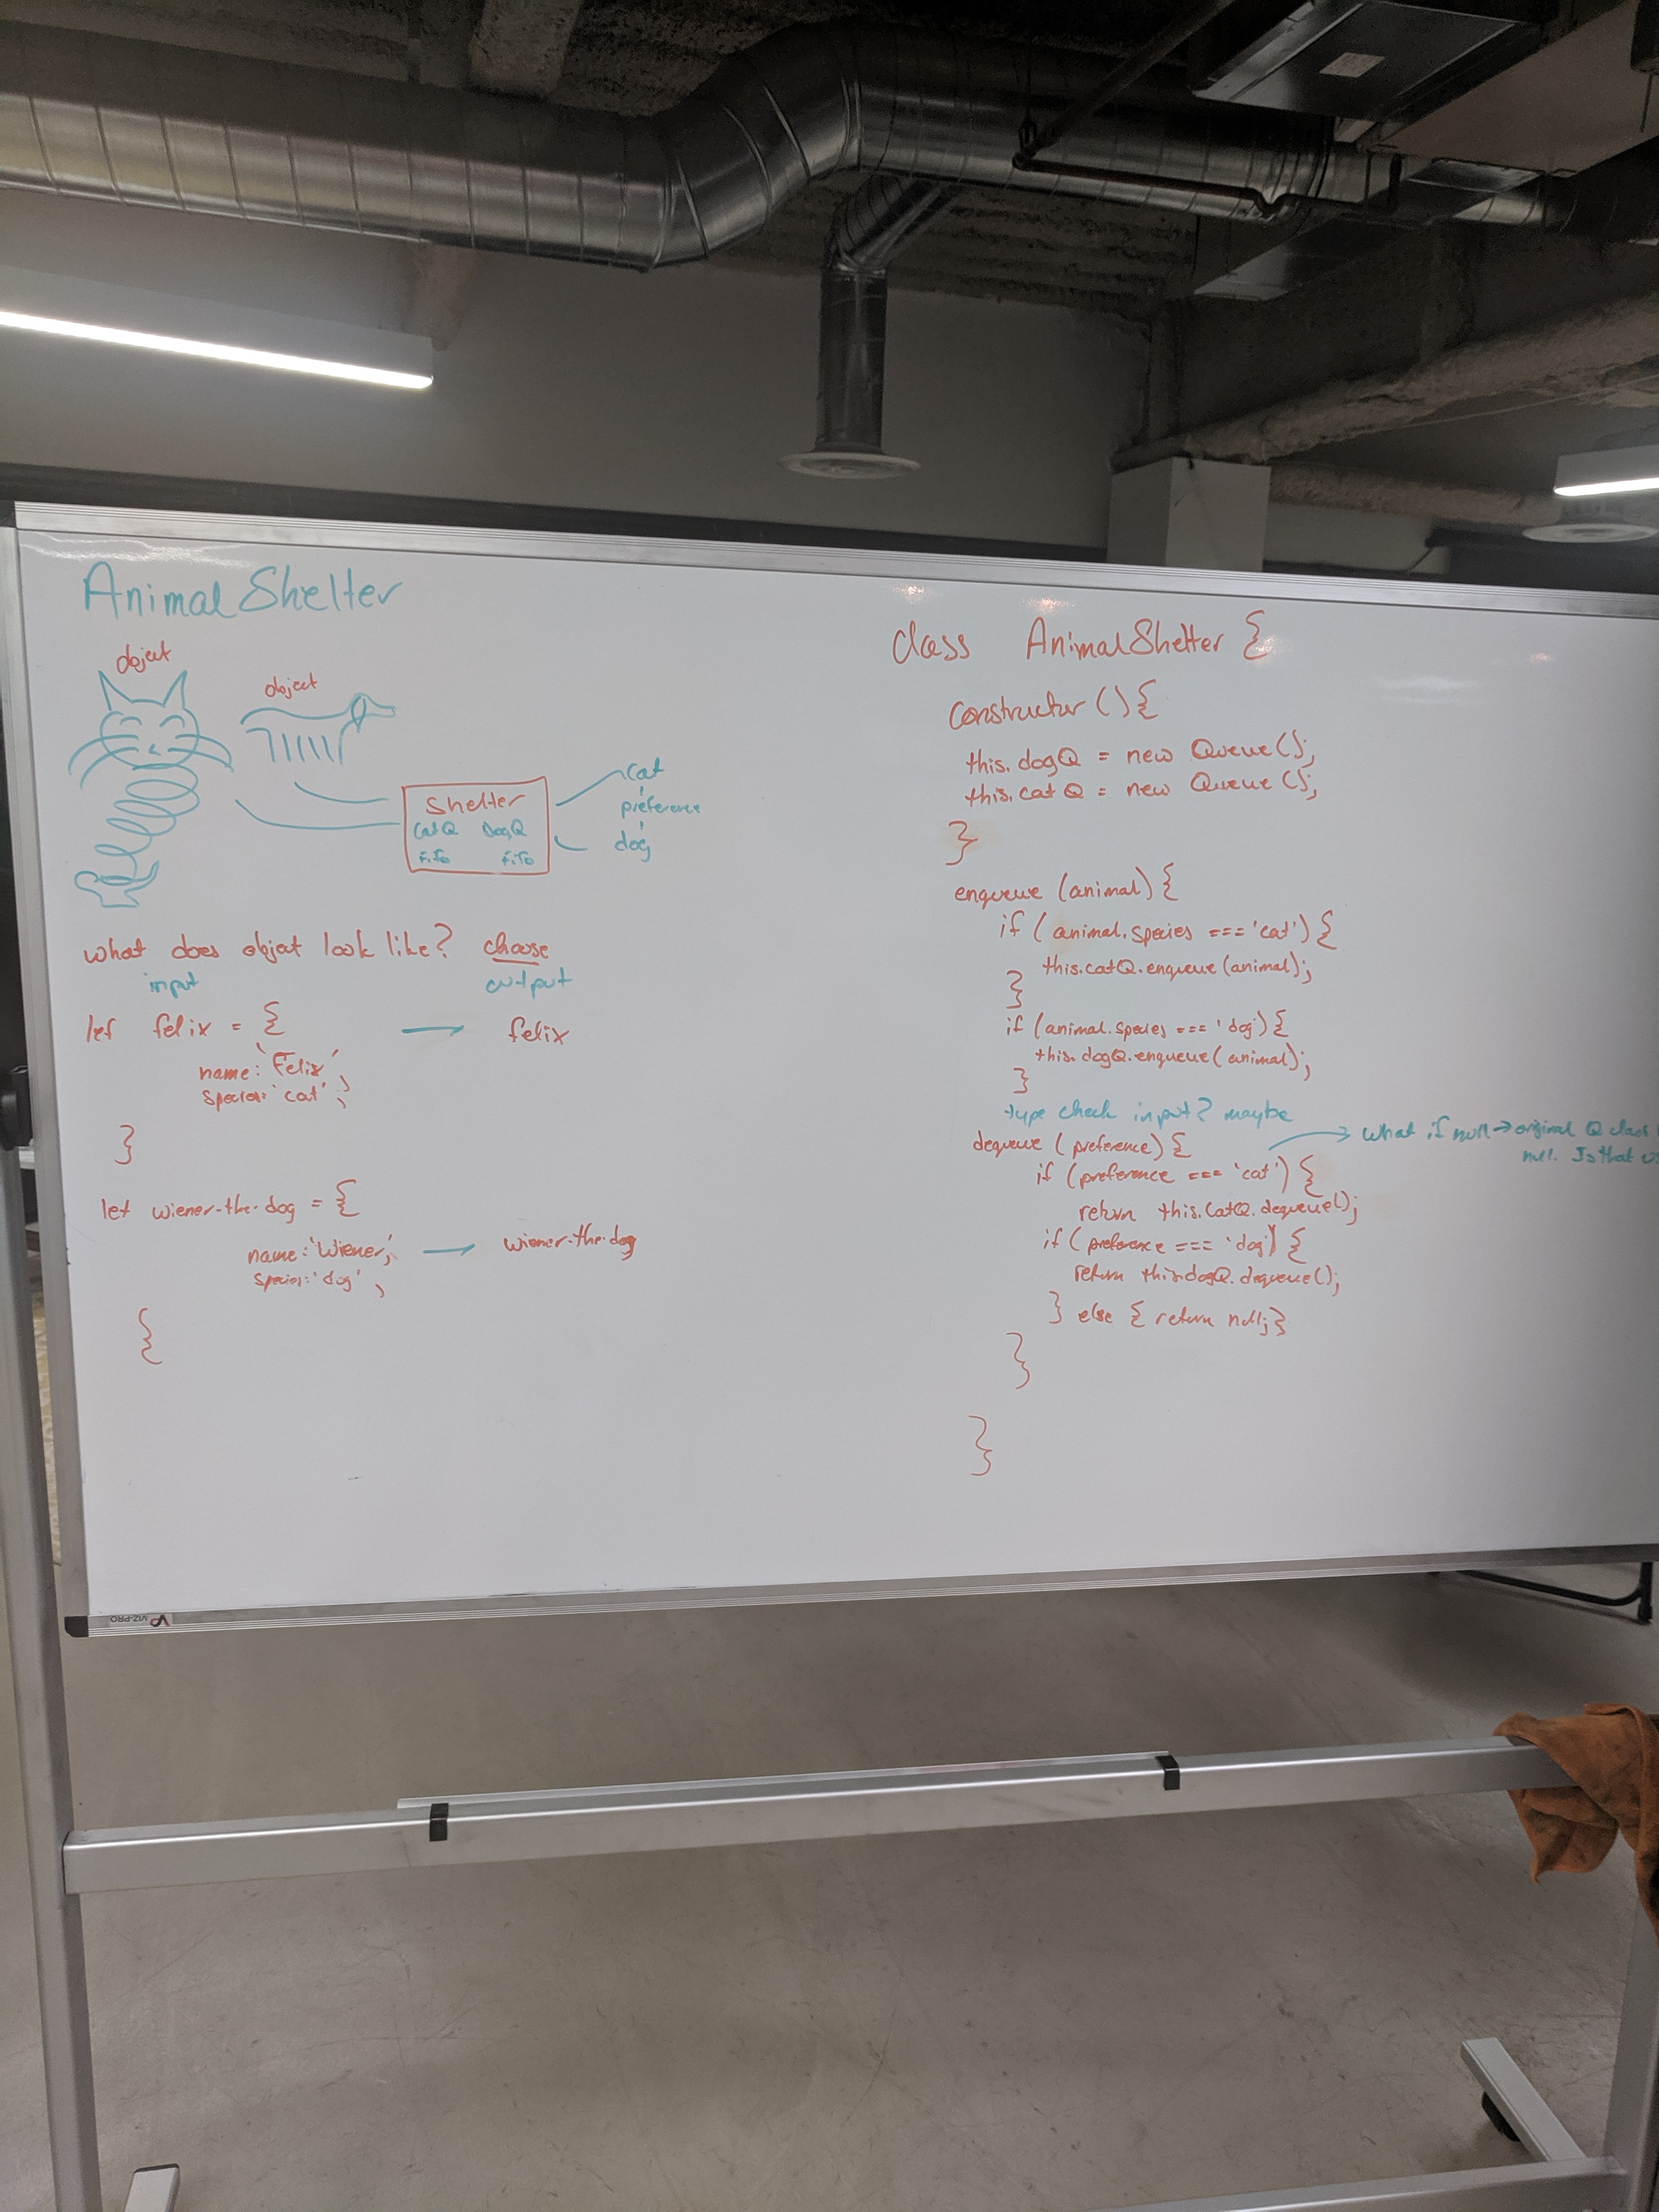 AnimalShelter
object
object
Shelter
CatQ DogQ
FiFo FiFo
cat
preference
dog
what does object look like? choose
input output
let felix = { felix
name: 'Felix',
Species: 'cat',
}
let wiener-the-dog = {
name: 'Wiener', wiener-the-dog
Species: 'dog',
{
class AnimalShelter {
constructor () {
this.dogQ = new Queue();
this.catQ = new Queue();
}
enqueue (animal) {
if (animal.species === 'cat') {
this.catQ.enqueue(animal);
}
if (animal.species === 'dog') {
this.dogQ.enqueue(animal);
}
type check input? maybe
dequeue (preference) { what if null → original Q class
null. Is that
if (preference === 'cat') {
return this.CatQ.dequeue();
if (preference === 'dog') {
return this.dogQ.dequeue();
} else { return null; }
}
}
VIZ-PRO